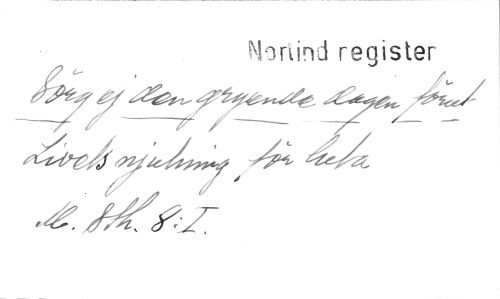 Norlind register
Sörg ej den gryende dagen förut
Livets njutning för heta
M. Sth. 8:I.